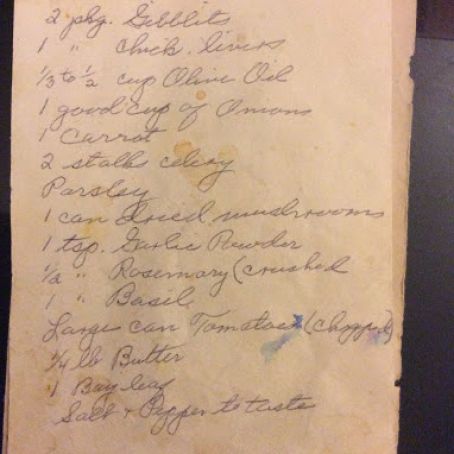 2 pkg. Gibblits
1 " chick. livers
1/3 to 1/2 cup Olive Oil
1 good cup of Onions
1 Carrot
2 stalks celery
Parsley
1 can sliced mushrooms
1 tsp. Garlic Powder
1/2 " Rosemary (crushed
1 " Basil
Large can Tomatoes (chopped)
1/4 lb Butter
1 Bay leaf
Salt + Pepper to taste